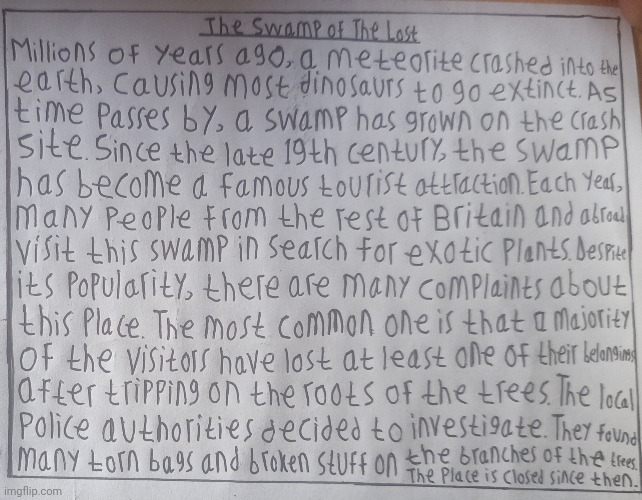 The Swamp of The Lost
Millions of years ago, a meteorite crashed into the
earth, causing most dinosaurs to go extinct. As
time passes by, a swamp has grown on the crash
site. Since the late 19th century, the swamp
has become a famous tourist attraction. Each year,
many people from the rest of Britain and abroad
visit this swamp in search for exotic plants. Despite
its popularity, there are many complaints about
this place. The most common one is that a majority
of the visitors have lost at least one of their belongings
after tripping on the roots of the trees. The local
police authorities decided to investigate. They found
many torn bags and broken stuff on the branches of the trees.
The place is closed since then.
imgflip.com